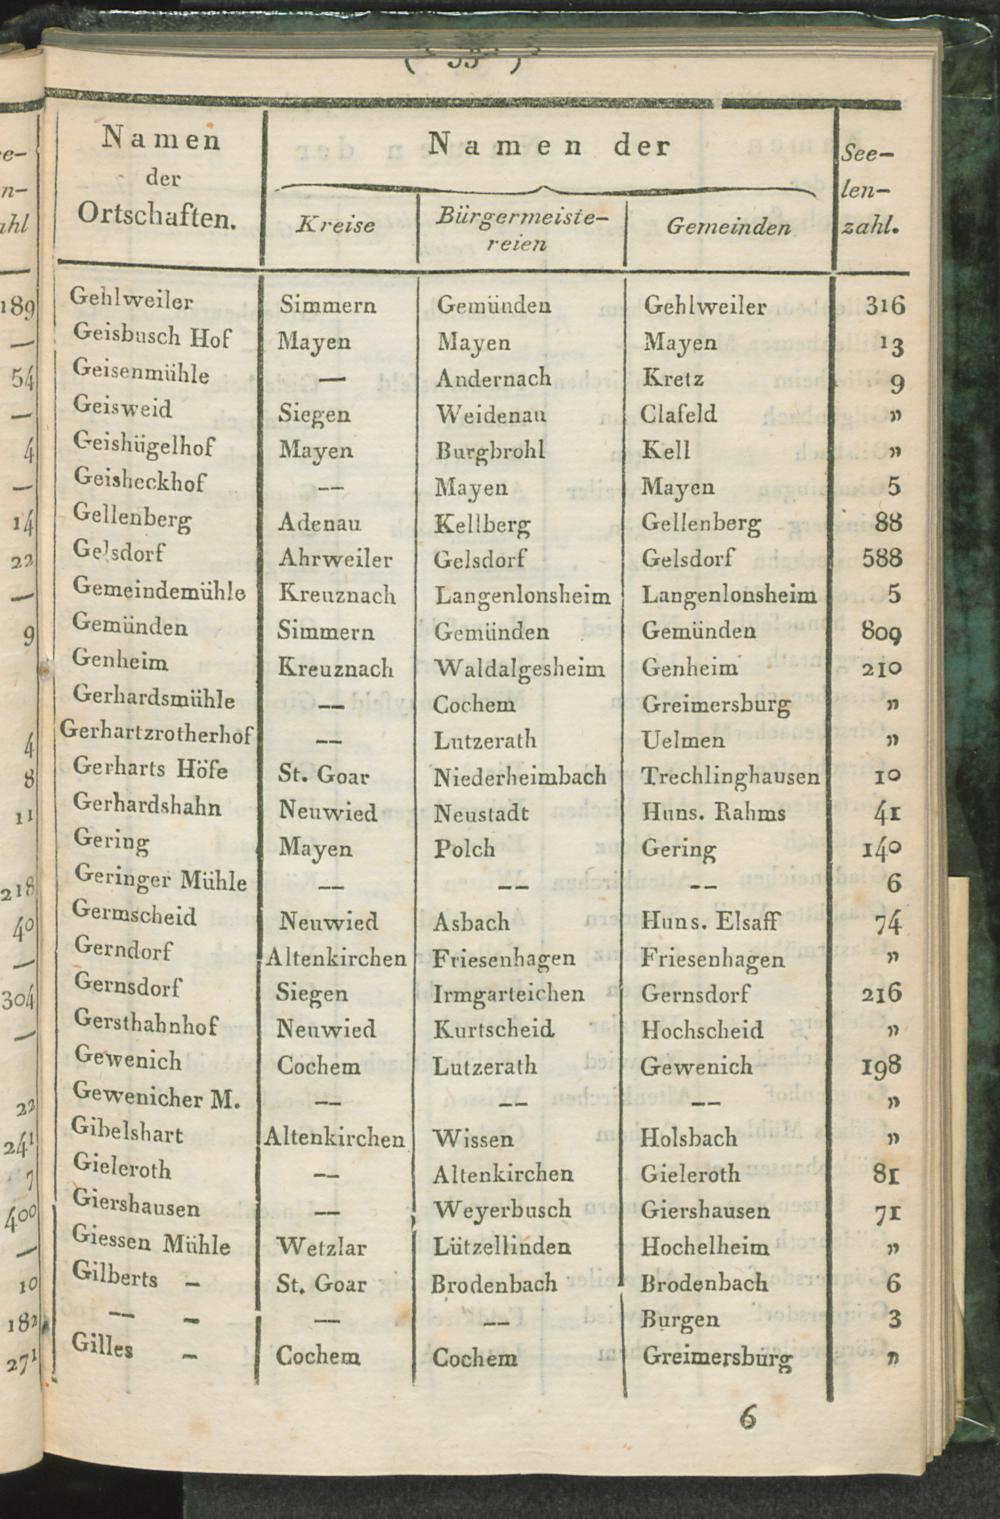 ( 33 )
Namen der Ortschaften. | Namen der | See-
Kreise | Bürgermeiste- | Gemeinden | len-
reien | zahl.
Gehlweiler | Simmern | Gemünden | Gehlweiler | 316
Geisbusch Hof | Mayen | Mayen | Mayen | 13
Geisenmühle | — | Andernach | Kretz | 9
Geisweid | Siegen | Weidenau | Clafeld | „
Geishügelhof | Mayen | Burgbrohl | Kell | „
Geisheckhof | — | Mayen | Mayen | 5
Gellenberg | Adenau | Kellberg | Gellenberg | 88
Gelsdorf | Ahrweiler | Gelsdorf | Gelsdorf | 588
Gemeindemühle | Kreuznach | Langenlonsheim | Langenlonsheim | 5
Gemünden | Simmern | Gemünden | Gemünden | 809
Genheim | Kreuznach | Waldalgesheim | Genheim | 210
Gerhardsmühle | — | Cochem | Greimersburg | „
Gerhartzrotherhof | — | Lutzerath | Uelmen | „
Gerharts Höfe | St. Goar | Niederheimbach | Trechlinghausen | 10
Gerhardshahn | Neuwied | Neustadt | Huns. Rahms | 41
Gering | Mayen | Polch | Gering | 140
Geringer Mühle | — | — | — | 6
Germscheid | Neuwied | Asbach | Huns. Elsaff | 74
Gerndorf | Altenkirchen | Friesenhagen | Friesenhagen | „
Gernsdorf | Siegen | Irmgarteichen | Gernsdorf | 216
Gersthahnhof | Neuwied | Kurtscheid | Hochscheid | „
Gewenich | Cochem | Lutzerath | Gewenich | 198
Gewenicher M. | — | — | — | „
Gibelshart | Altenkirchen | Wissen | Holsbach | „
Gieleroth | — | Altenkirchen | Gieleroth | 81
Giershausen | — | Weyerbusch | Giershausen | 71
Giessen Mühle | Wetzlar | Lützellinden | Hochelheim | „
Gilberts – | St. Goar | Brodenbach | Brodenbach | 6
— – | — | — | Burgen | 3
Gilles – | Cochem | Cochem | Greimersburg | „
6